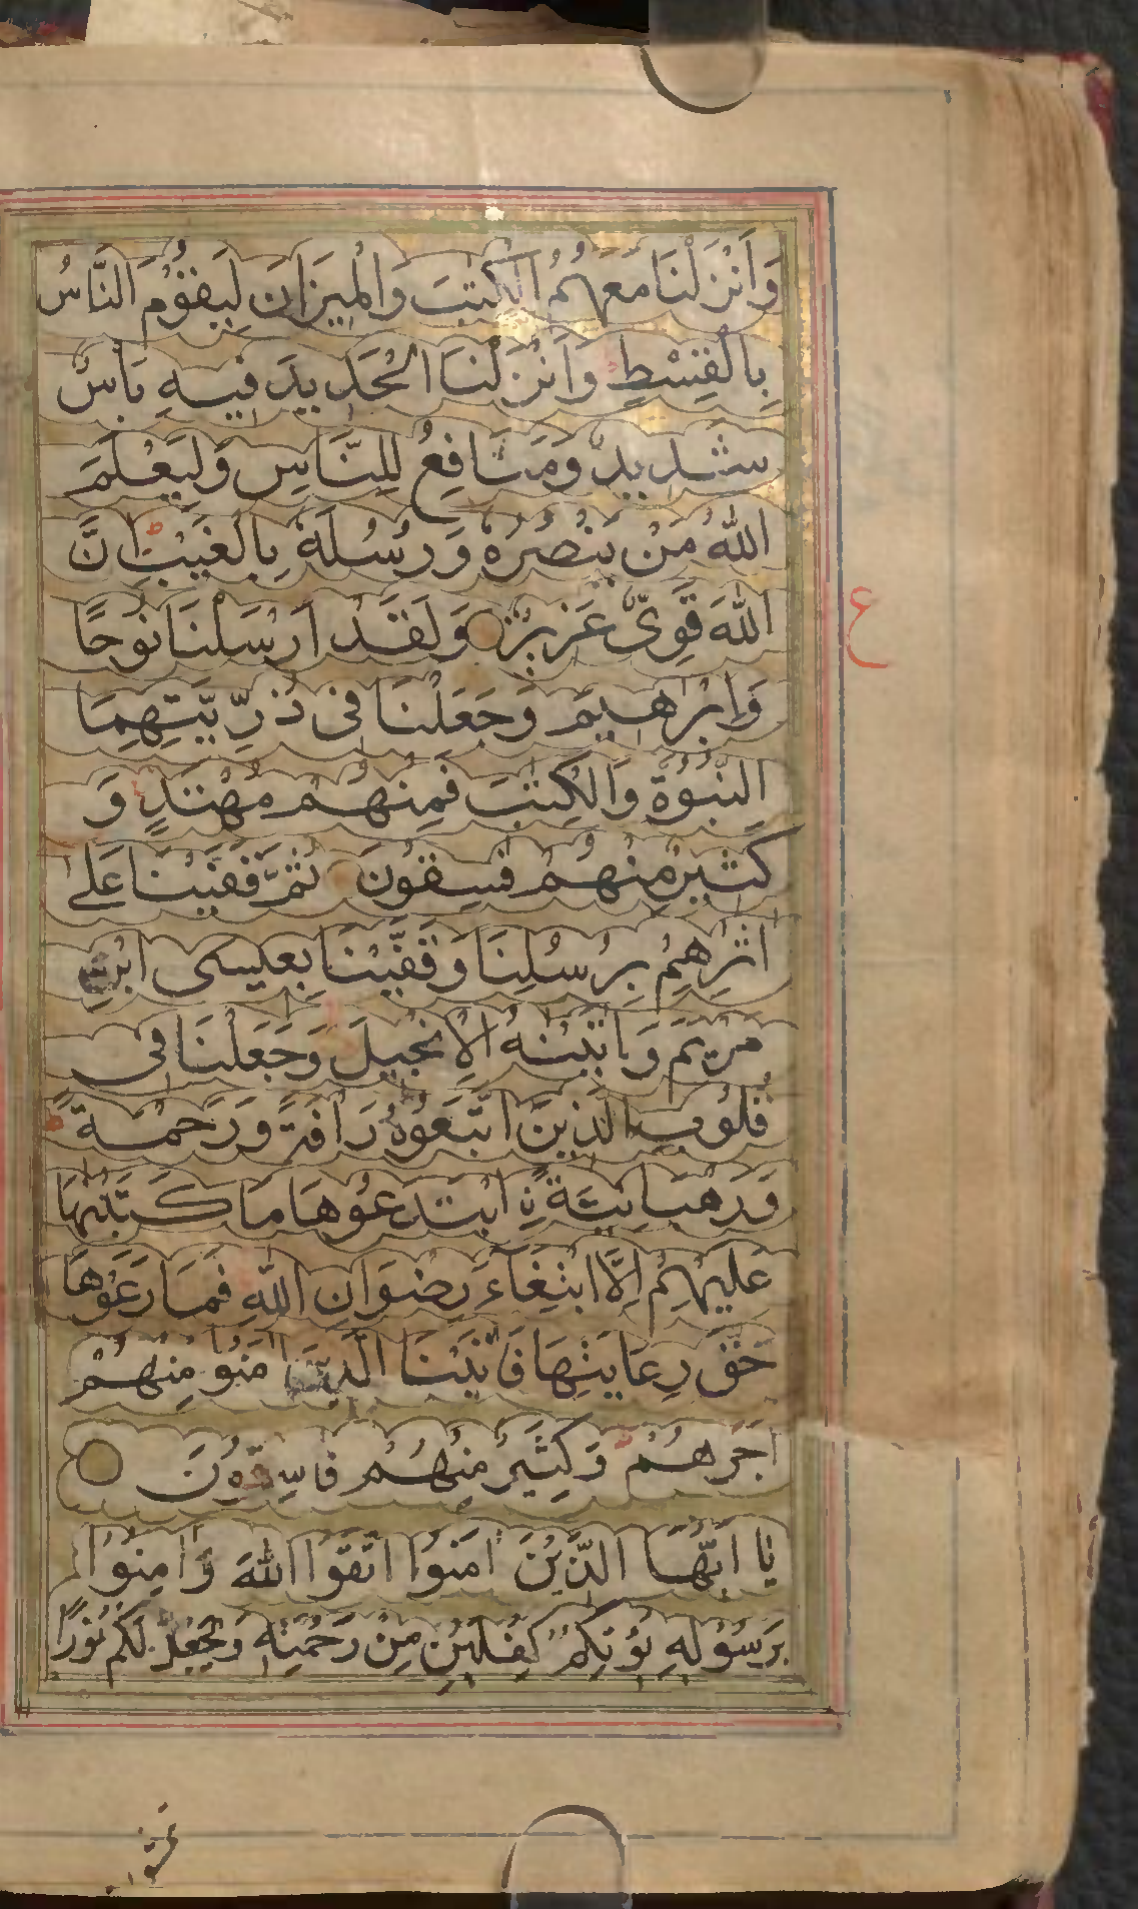 وَاَنْزَلْنَا مَعَهُمُ الْكِتٰبَ وَالْمِيْزَانَ لِيَقُوْمَ النَّاسُ
بِالْقِسْطِ وَاَنْزَلْنَا الْحَدِيدَ فِيهِ بَاْسٌ
شَدِيدٌ وَمَنَافِعُ لِلنَّاسِ وَلِيَعْلَمَ
اللّٰهُ مَنْ يَنْصُرُهٗ وَرُسُلَهٗ بِالْغَيْبِ اِنَّ
اللّٰهَ قَوِىٌّ عَزِيزٌ وَلَقَدْ اَرْسَلْنَا نُوحًا
وَاِبْرٰهِيمَ وَجَعَلْنَا فِى ذُرِّيَّتِهِمَا
النُّبُوَّةَ وَالْكِتٰبَ فَمِنْهُمْ مُهْتَدٍ وَ
كَثِيرٌ مِنْهُمْ فٰسِقُونَ ثُمَّ قَفَّيْنَا عَلٰى
اٰثٰرِهِمْ بِرُسُلِنَا وَقَفَّيْنَا بِعِيسَى ابْنِ
مَرْيَمَ وَاٰتَيْنٰهُ الْاِنْجِيلَ وَجَعَلْنَا فِى
قُلُوبِ الَّذِينَ اتَّبَعُوهُ رَاْفَةً وَرَحْمَةً
وَرَهْبَانِيَّةً نِ ابْتَدَعُوهَا مَا كَتَبْنٰهَا
عَلَيْهِمْ اِلَّا ابْتِغَاءَ رِضْوَانِ اللّٰهِ فَمَا رَعَوْهَا
حَقَّ رِعَايَتِهَا فَاٰتَيْنَا الَّذِينَ اٰمَنُوا مِنْهُمْ
اَجْرَهُمْ وَكَثِيرٌ مِنْهُمْ فَاسِقُونَ
يٰا اَيُّهَا الَّذِيْنَ اٰمَنُوا اتَّقُوا اللّٰهَ وَاٰمِنُوا
بِرَسُوْلِهٖ يُؤْتِكُمْ كِفْلَيْنِ مِنْ رَحْمَتِهٖ وَيَجْعَلْ لَكُمْ نُوْرًا
ع